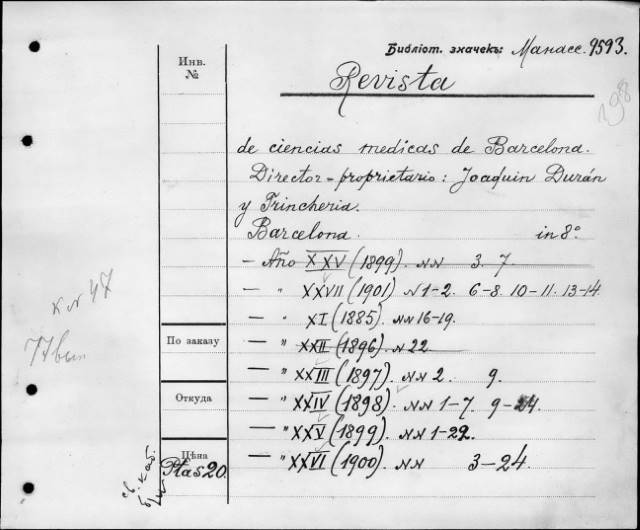 Библіот. значекъ: Манасс. 9593.
Инв.
№
Revista
298
de ciencias medicas de Barcelona.
Director-proprietario: Joaquin Durán
y Trincheria.
Barcelona. in 8°
- Año XXV (1899). NN 3. 7
- " XXVII (1901) N 1-2. 6-8. 10-11. 13-14.
- " XI (1885). NN 16-19.
По заказу
- " XXII (1896). N 22
- " XXIII (1897). NN 2. 9.
Откуда
- " XXIV (1898). NN 1-7. 9-24.
- " XXV (1899). NN 1-22.
Цѣна
Ptas 20.
- " XXVI (1900). NN 3-24.
к № 47
77 вып